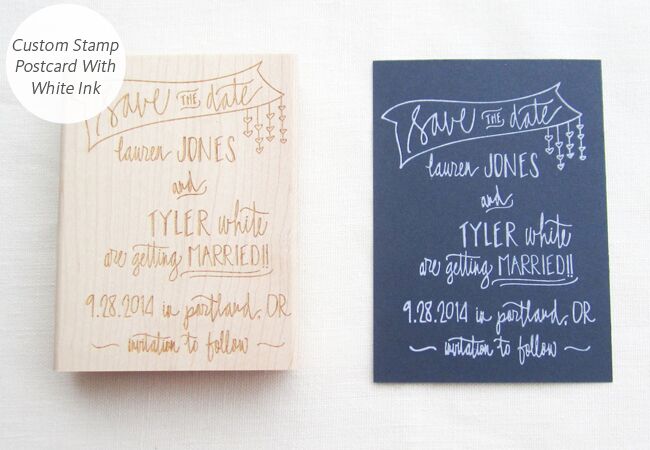 Custom Stamp
Postcard With
White Ink
save THE date
lauren JONES
and
TYLER white
are getting MARRIED!!
9.28.2014 in portland, OR
invitation to follow
save THE date
lauren JONES
and
TYLER white
are getting MARRIED!!
9.28.2014 in portland, OR
invitation to follow